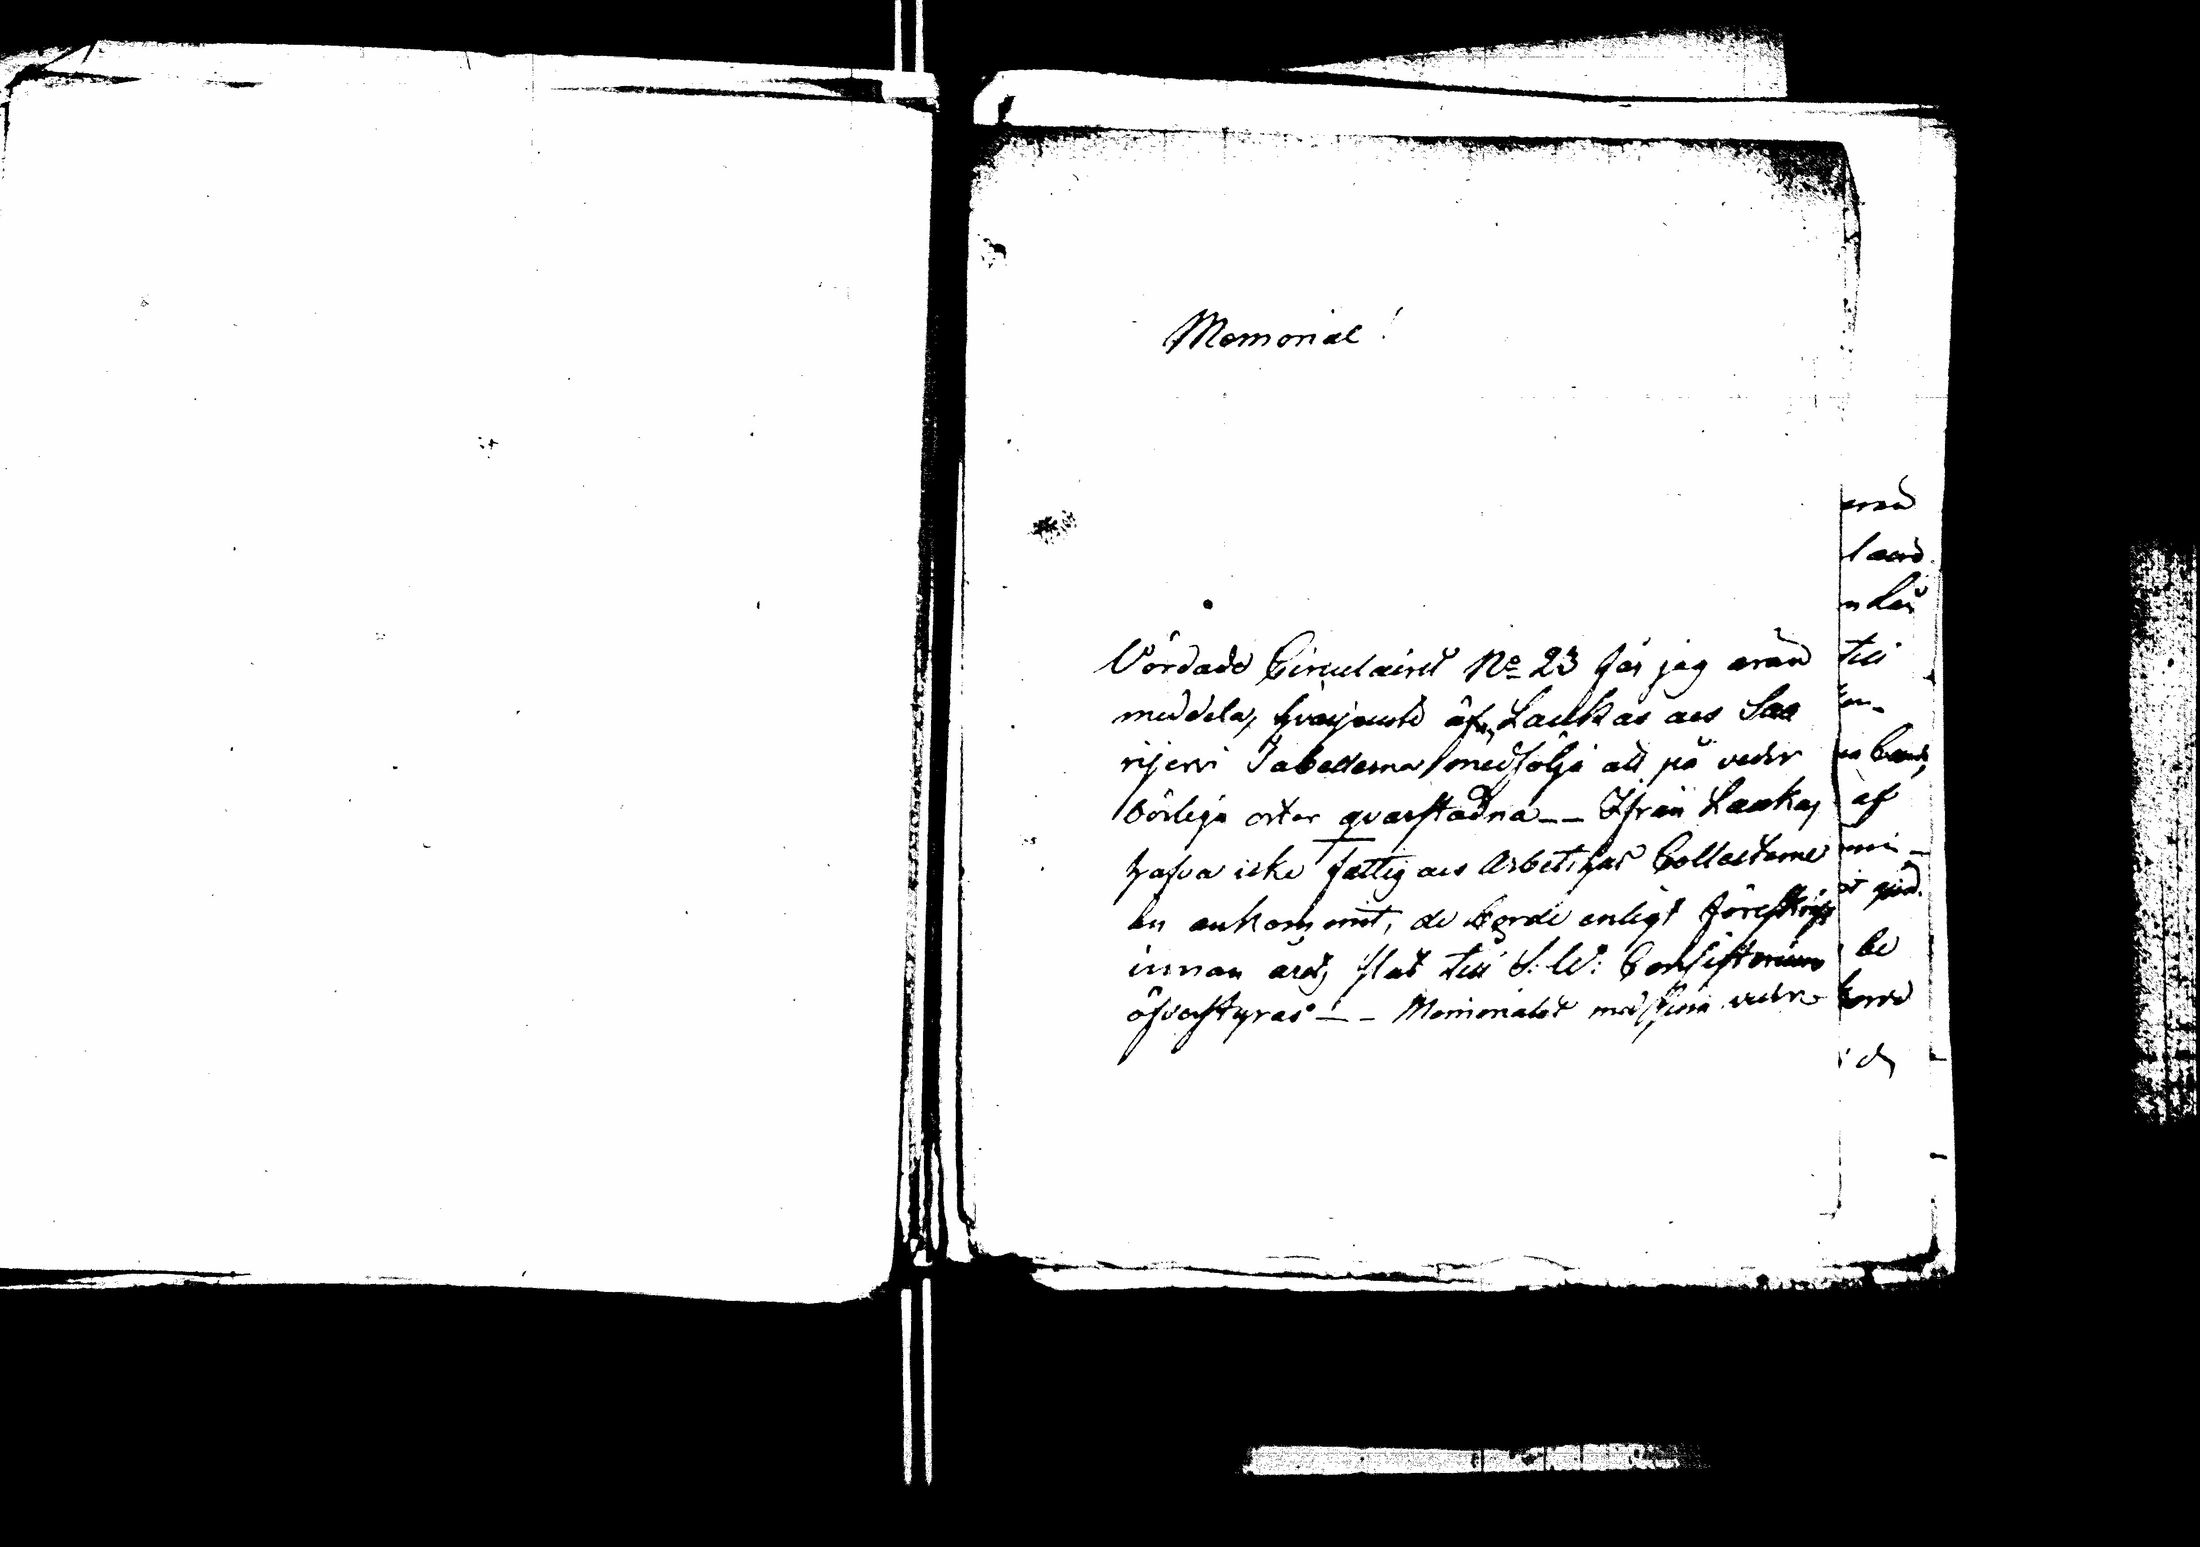 Memorial!
Vördade Circulairet No 23 får jag äran
meddela, hvarjemte af Laukas och Saa
rijervi Tabellerna medfölja att på veder
börliga orter qvarstadna -- Ifrån Laukas
hafva icke fattig och Arbetshus Collecterne
än ankommit, de borde enligt föreskrift
innan årets slut till S. W. Consistorium
öfverstyras -- Memorialet med sina
äran
land
till
af
be